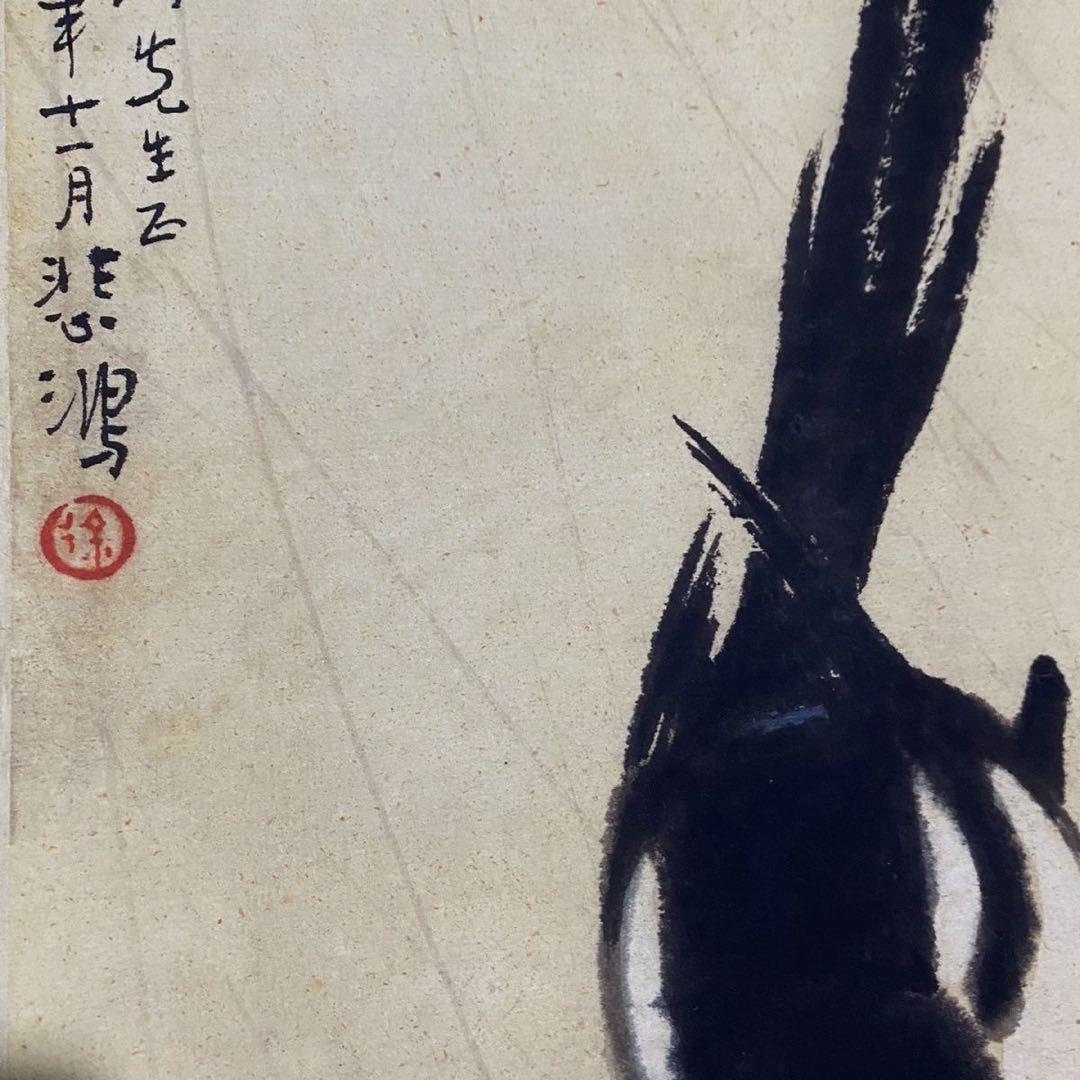 先生正
年十一月悲鴻
徐